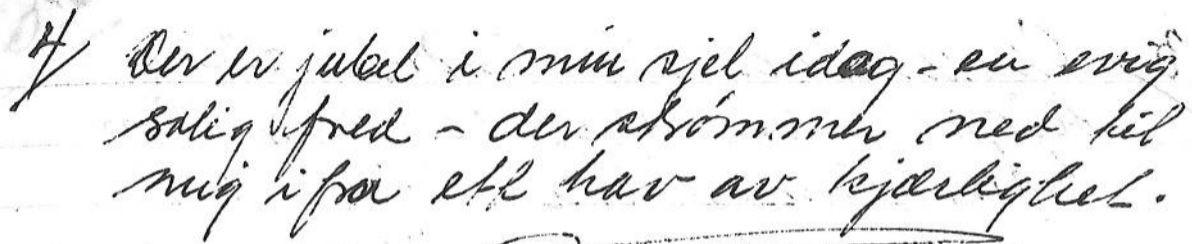 4/ Der er jubel i min sjel idag - en evig
salig fred - der strømmer ned til
mig ifra ett hav av kjærlighet.